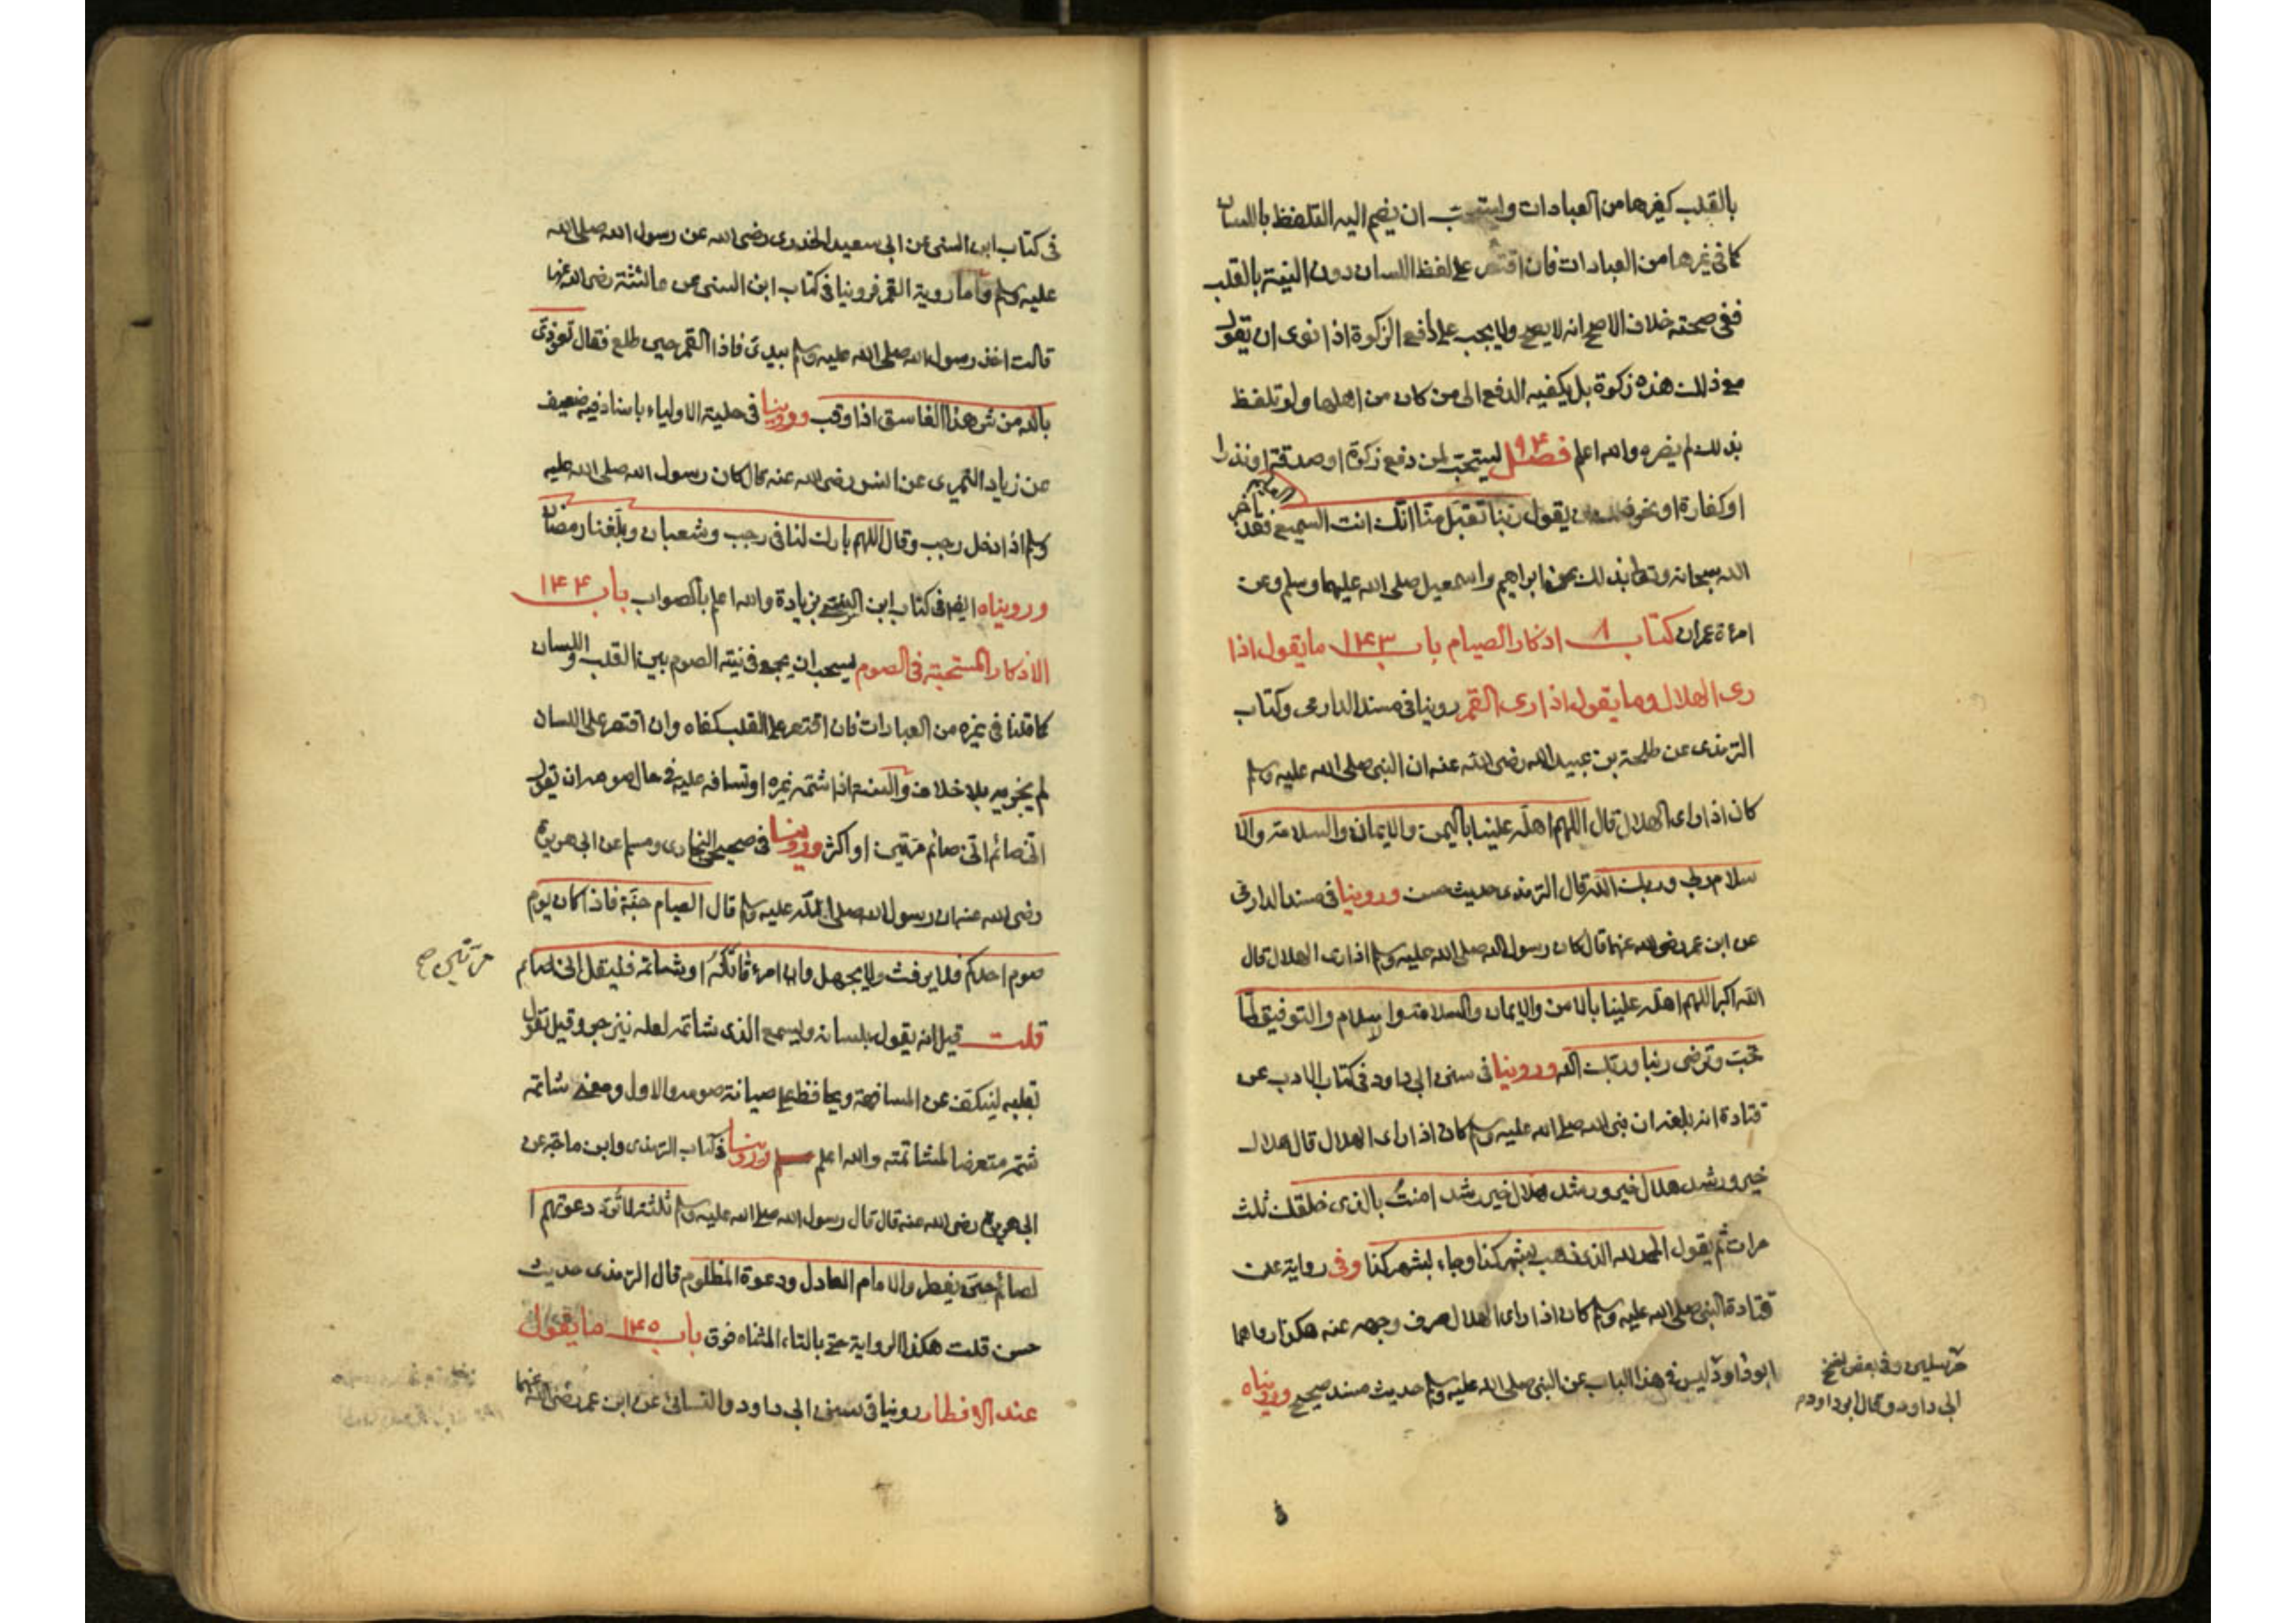 بالقلب كغيرها من العبادات ويستحب ان يضم اليه التلفظ باللسان
كما في غيرها من العبادات فان اقتصر على لفظ اللسان دون النية بالقلب
ففي صحته خلاف الاصح انه لا يصح ولا يجب على دافع الزكوة اذا نوى ان يقول
مع ذلك هذه زكوة بل يكفيه الدفع الى من كان من اهلها ولو تلفظ
بذلك لم يضره والله اعلم فصل ٩٤ يستحب لمن دفع زكوة او صدقة او نذرا
او كفارة او نحو ذلك ان يقول ربنا تقبل منا انك انت السميع العليم فقد اخبر
الله سبحانه وتعالى بذلك عن ابراهيم واسمعيل صلى الله عليهما وسلم وعن
امرءة عمران كتاب ٨ اذكار الصيام باب ١٤٣ ما يقول اذا
رى الهلال وما يقول اذا رى القمر روينا في مسند الدارمي وكتاب
الترمذى عن طلحة بن عبيد الله رضي الله عنه ان النبي صلى الله عليه وسلم
كان اذا راى الهلال قال اللهم اهله علينا باليمن والايمان والسلامة والا
سلام ربي وربك الله قال الترمذى حديث حسن وروينا في مسند الدارمي
عن ابن عمر رضي الله عنهما قال كان رسول الله صلى الله عليه وسلم اذا راى الهلال قال
الله اكبر اللهم اهله علينا بالامن والايمان والسلامة والاسلام والتوفيق لما
تحب وترضى ربنا وربك الله وروينا في سنن ابي داود في كتاب الادب عن
قتادة انه بلغه ان نبي الله صلى الله عليه وسلم كان اذا راى الهلال قال هلال
خير ورشد هلال خير ورشد هلال خير رشد امنت بالذى خلقك ثلث
مرات ثم يقول الحمد لله الذى ذهب بشهر كذا وجاء بشهر كذا وفي رواية عن
قتادة النبي صلى الله عليه وسلم كان اذا راى الهلال صرف وجهه عنه هكذا رواهما
ابو داود ليس في هذا الباب عن النبي صلى الله عليه وسلم حديث مسند صحيح ورويناه
مرسلين وفي بعض نسخ
ابي داود وقال ابو داود
في كتاب ابن السني عن ابي سعيد الخدرى رضي الله عن رسول الله صلى الله
عليه وسلم واما روية القمر فروينا في كتاب ابن السني عن عائشة رضي الله عنها
قالت اخذ رسول الله صلى الله عليه وسلم بيدى فاذا القمر حين طلع فقال تعوذى
بالله من شر هذا الغاسق اذا وقب وروينا في حلية الاولياء باسناد فيه ضعيف
عن زياد النميرى عن انس رضي الله عنه قال كان رسول الله صلى الله عليه
وسلم اذا دخل رجب وقال اللهم بارك لنا في رجب وشعبان وبلغنا رمضان
ورويناه ايضا في كتاب ابن السني بزيادة والله اعلم بالصواب باب ١٤٤
الاذكار المستحبة في الصوم يستحب ان يجمع في نية الصوم بين القلب واللسان
كما قلنا في غيره من العبادات فان اقتصر على القلب كفاه وان اقتصر على اللسان
لم يجزيه بلا خلاف والسنة اذا شتمه غيره او تسافه عليه في حال صومه ان يقول
اني صائم اني صائم مرتين او اكثر وروينا في صحيحي البخارى ومسلم عن ابي هريرة
رضي الله عنه ان رسول الله صلى الله عليه وسلم قال الصيام جنة فاذا كان يوم
صوم احدكم فلا يرفث ولا يجهل وان امرء قاتله او شاتمه فليقل اني صائم
مرتين صح
قلت قيل انه يقول بلسانه ويسمع الذى شاتمه لعله ينزجر وقيل يقول
بقلبه لينكف عن المسافهة ويحافظ على صيانة صومه والاول ومعنى شاتمه
شتمه متعرضا لمشاتمته والله اعلم وروينا في كتاب الترمذى وابن ماجه عن
ابي هريرة رضي الله عنه قال قال رسول الله صلى الله عليه وسلم ثلثة لا ترد دعوتهم ا
لصائم حتى يفطر والامام العادل ودعوة المظلوم قال الترمذى حديث
حسن قلت هكذا الرواية حتى بالتاء المثناه فوق باب ١٤٥ ما يقول
عند الافطار روينا في سنن ابي داود والنسائي عن ابن عمر رضي الله عنهما